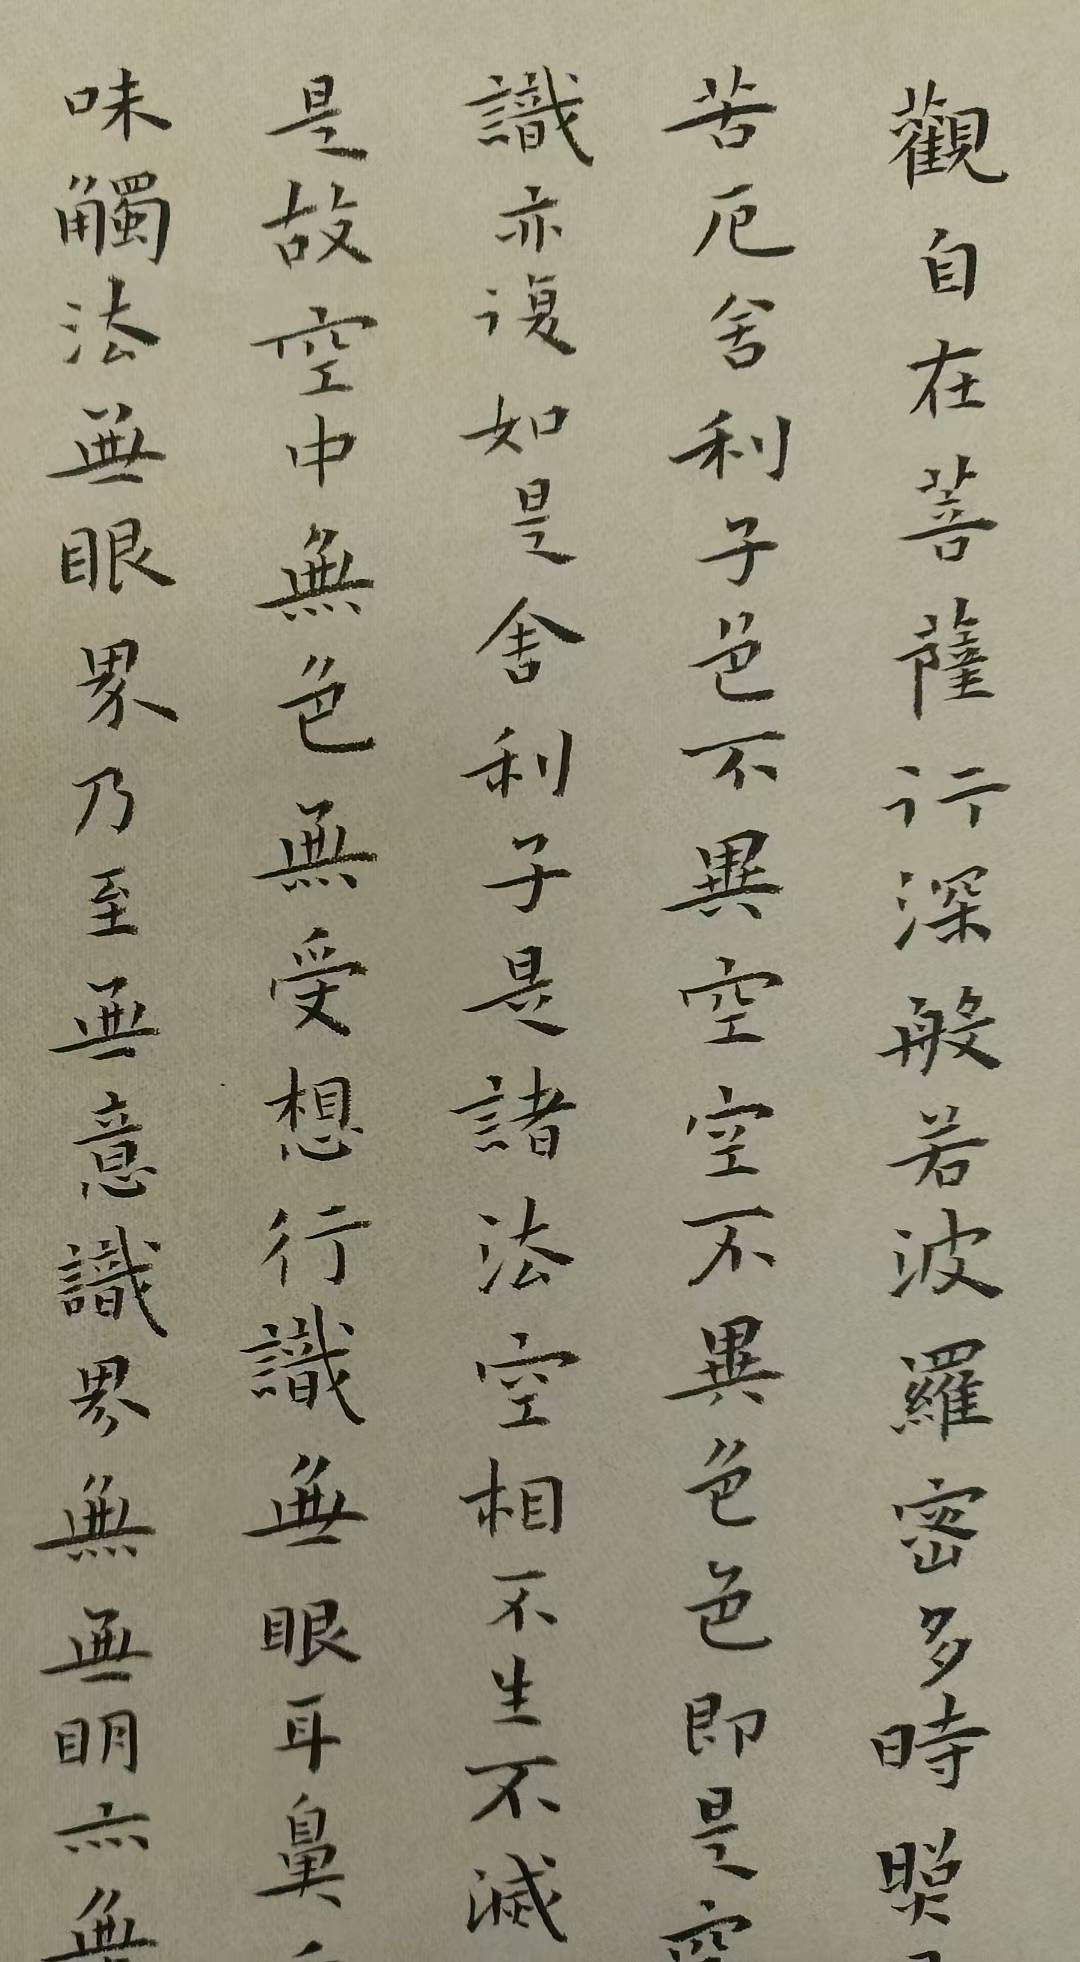 觀自在菩薩行深般若波羅密多時照
苦厄舍利子色不異空空不異色色即是空
識亦復如是舍利子是諸法空相不生不滅
是故空中無色無受想行識無眼耳鼻
味觸法無眼界乃至無意識界無無明亦無